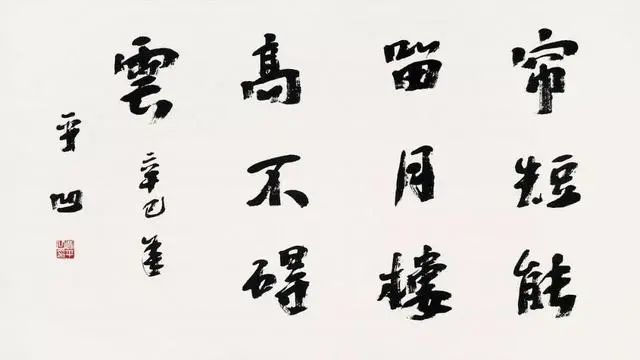 帘短能
留月樓
高不碍
雲
辛巳
平凹